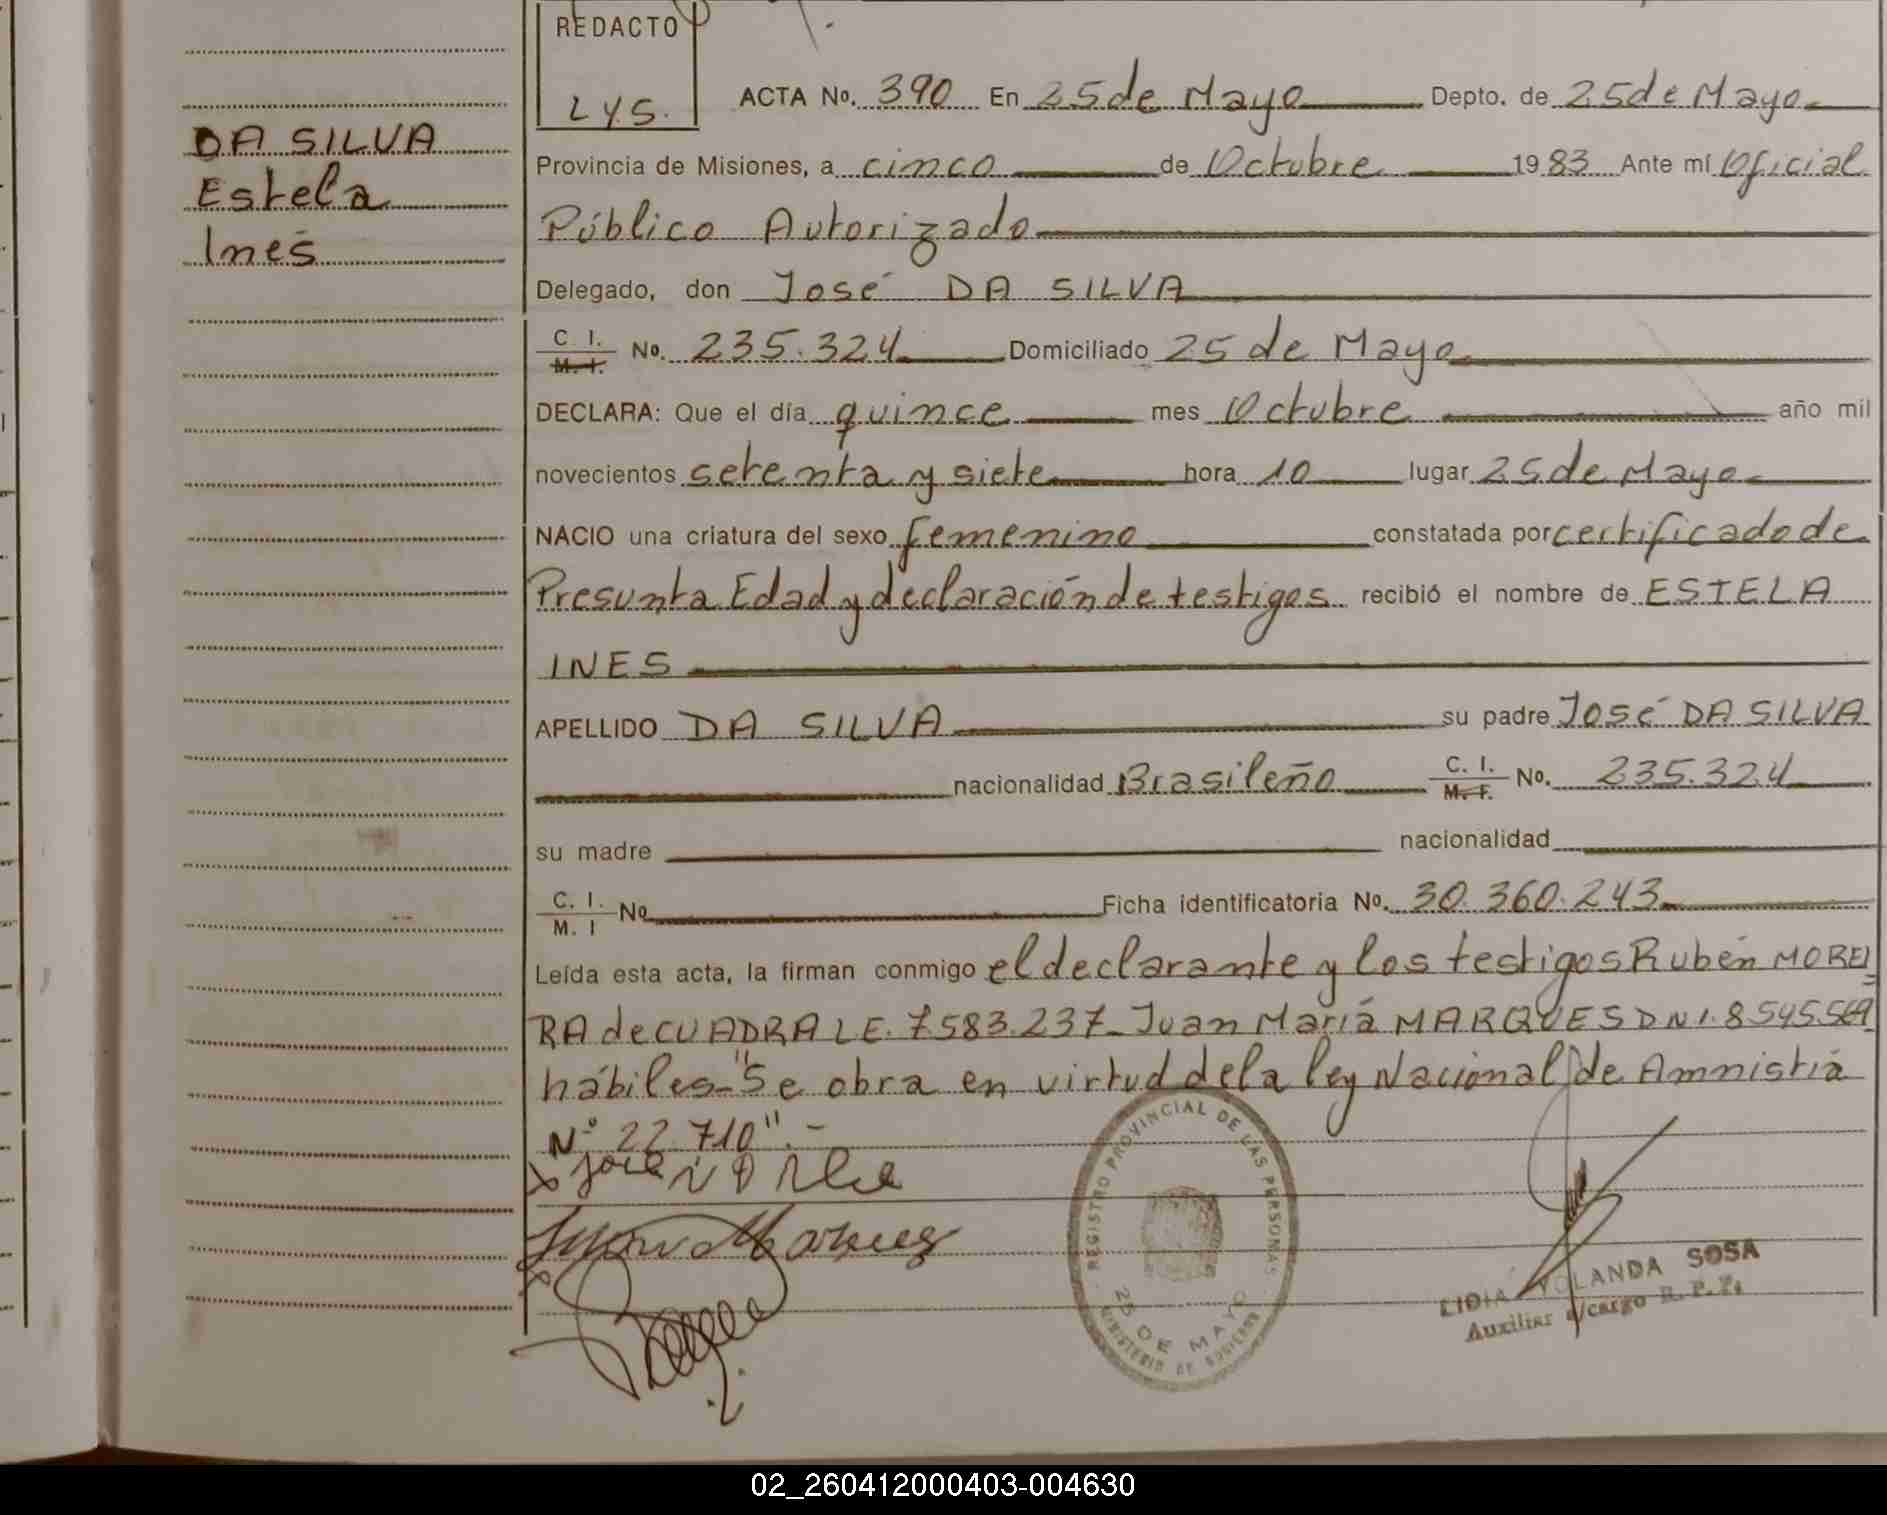 REDACTO
L y S.
DA SILVA
Estela
Inés
ACTA No. 390 En 25 de Mayo Depto. de 25 de Mayo
Provincia de Misiones, a cinco de Octubre 1983 Ante mí Oficial
Público Autorizado
Delegado, don José DA SILVA
C. I. M. I. No. 235.324 Domiciliado 25 de Mayo
DECLARA: Que el día quince mes Octubre año mil
novecientos setenta y siete hora 10 lugar 25 de Mayo
NACIO una criatura del sexo femenino constatada por certificado de
Presunta Edad y declaración de testigos recibió el nombre de ESTELA
INES
APELLIDO DA SILVA su padre José DA SILVA
nacionalidad Brasileño C. I. M. I. No. 235.324
su madre nacionalidad
C. I. M. I No Ficha identificatoria No. 30.360.243
Leída esta acta, la firman conmigo el declarante y los testigos Rubén MOREI
RA de CUADRA L.E. 7.583.237 Juan María MARQUES DNI. 8.545.569
hábiles- "Se obra en virtud de la ley Nacional de Amnistía
N° 22.710".-
REGISTRO PROVINCIAL DE LAS PERSONAS
25 DE MAYO
MINISTERIO DE GOBIERNO
LIDIA YOLANDA SOSA
Auxiliar a/cargo R. P. P.
02_260412000403-004630